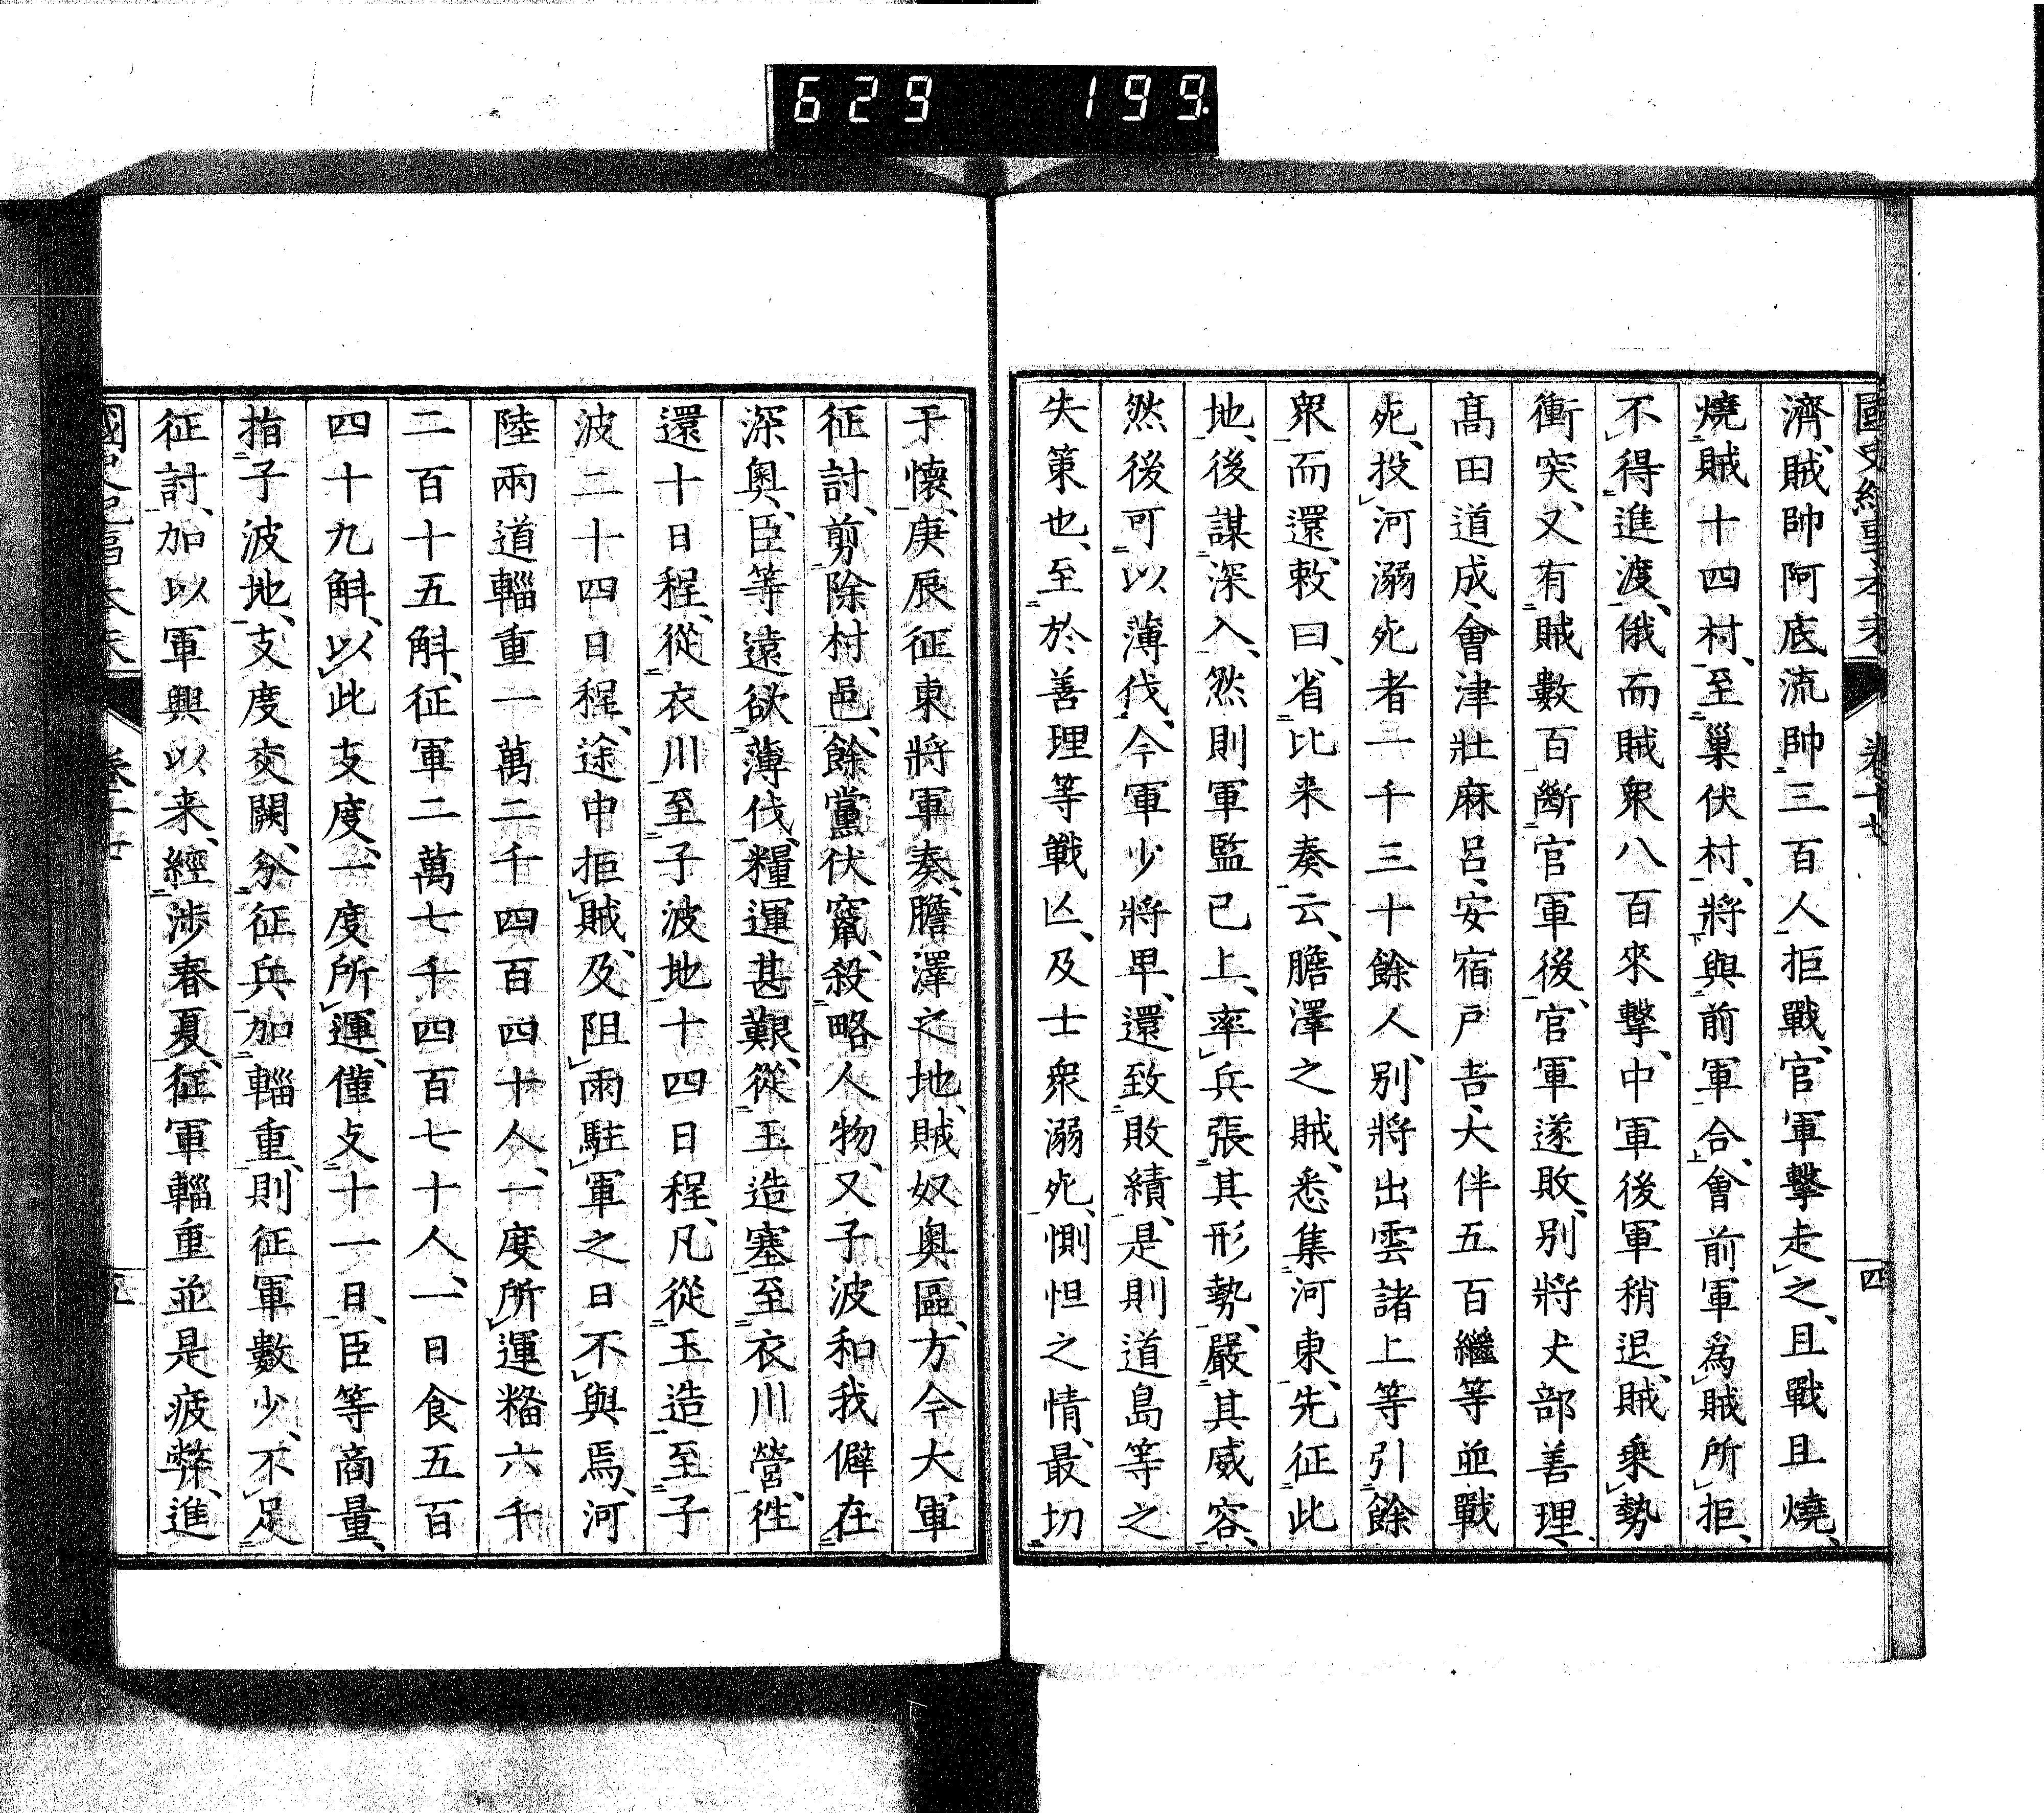 629 199
濟、賊帥阿底流帥三百人拒戰、官軍擊走之、且戰且燒、
燒賊十四村、至巢伏村、將與前軍合、會前軍爲賊所拒、
不得進渡、俄而賊衆八百來擊、中軍後軍稍退、賊乗勢
衝突、又有賊數百斷官軍後、官軍遂敗、別將丈部善理、
高田道成、會津壯麻呂、安宿戸吉、大伴五百繼等並戰
死、投河溺死者一千三十餘人、別將出雲諸上等引餘
衆而還、敕曰、省比来奏云、膽澤之賊、悉集河東、先征此
地、後謀深入、然則軍監已上、率兵張其形勢、嚴其威容、
然後可以薄伐、今軍少將卑、還致敗績、是則道島等之
失策也、至於善理等戰亡、及士衆溺死、惻怛之情、最切
于懷、庚辰征東將軍奏、膽澤之地、賊奴奥區、方今大軍
征討、剪除村邑、餘黨伏竄、殺略人物、又子波和我僻在
深奥、臣等遠欲薄伐、糧運甚艱、從玉造塞至衣川營、徃
還十日程、從衣川至子波地十四日程、凡從玉造至子
波二十四日程、途中拒賊、及阻雨駐軍之日不與焉、河
陸兩道輜重一萬二千四百四十人、一度所運糒六千
二百十五斛、征軍二萬七千四百七十人、一日食五百
四十九斛、以此支度、一度所運、僅支十一日、臣等商量、
指子波地、支度交闕、分征兵加輜重、則征軍數少、不足
征討、加以軍興以来、經渉春夏、征軍輜重並是疲弊、進